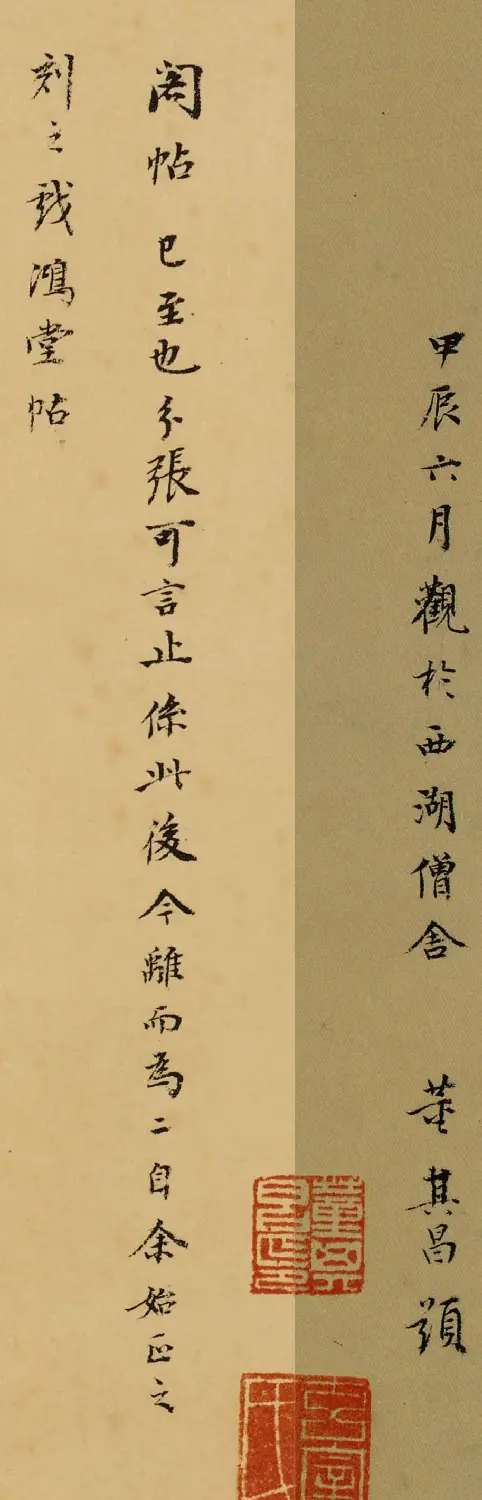 甲辰六月觀於西湖僧舍 董其昌題
閣帖已至也分張可言止係此後今離而為二自余始正之
刻之戲鴻堂帖
董其昌印